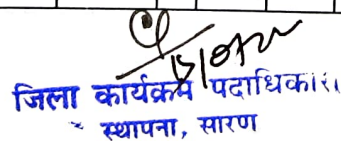 जिला कार्यक्रम पदाधिकारी
स्थापना, सारण